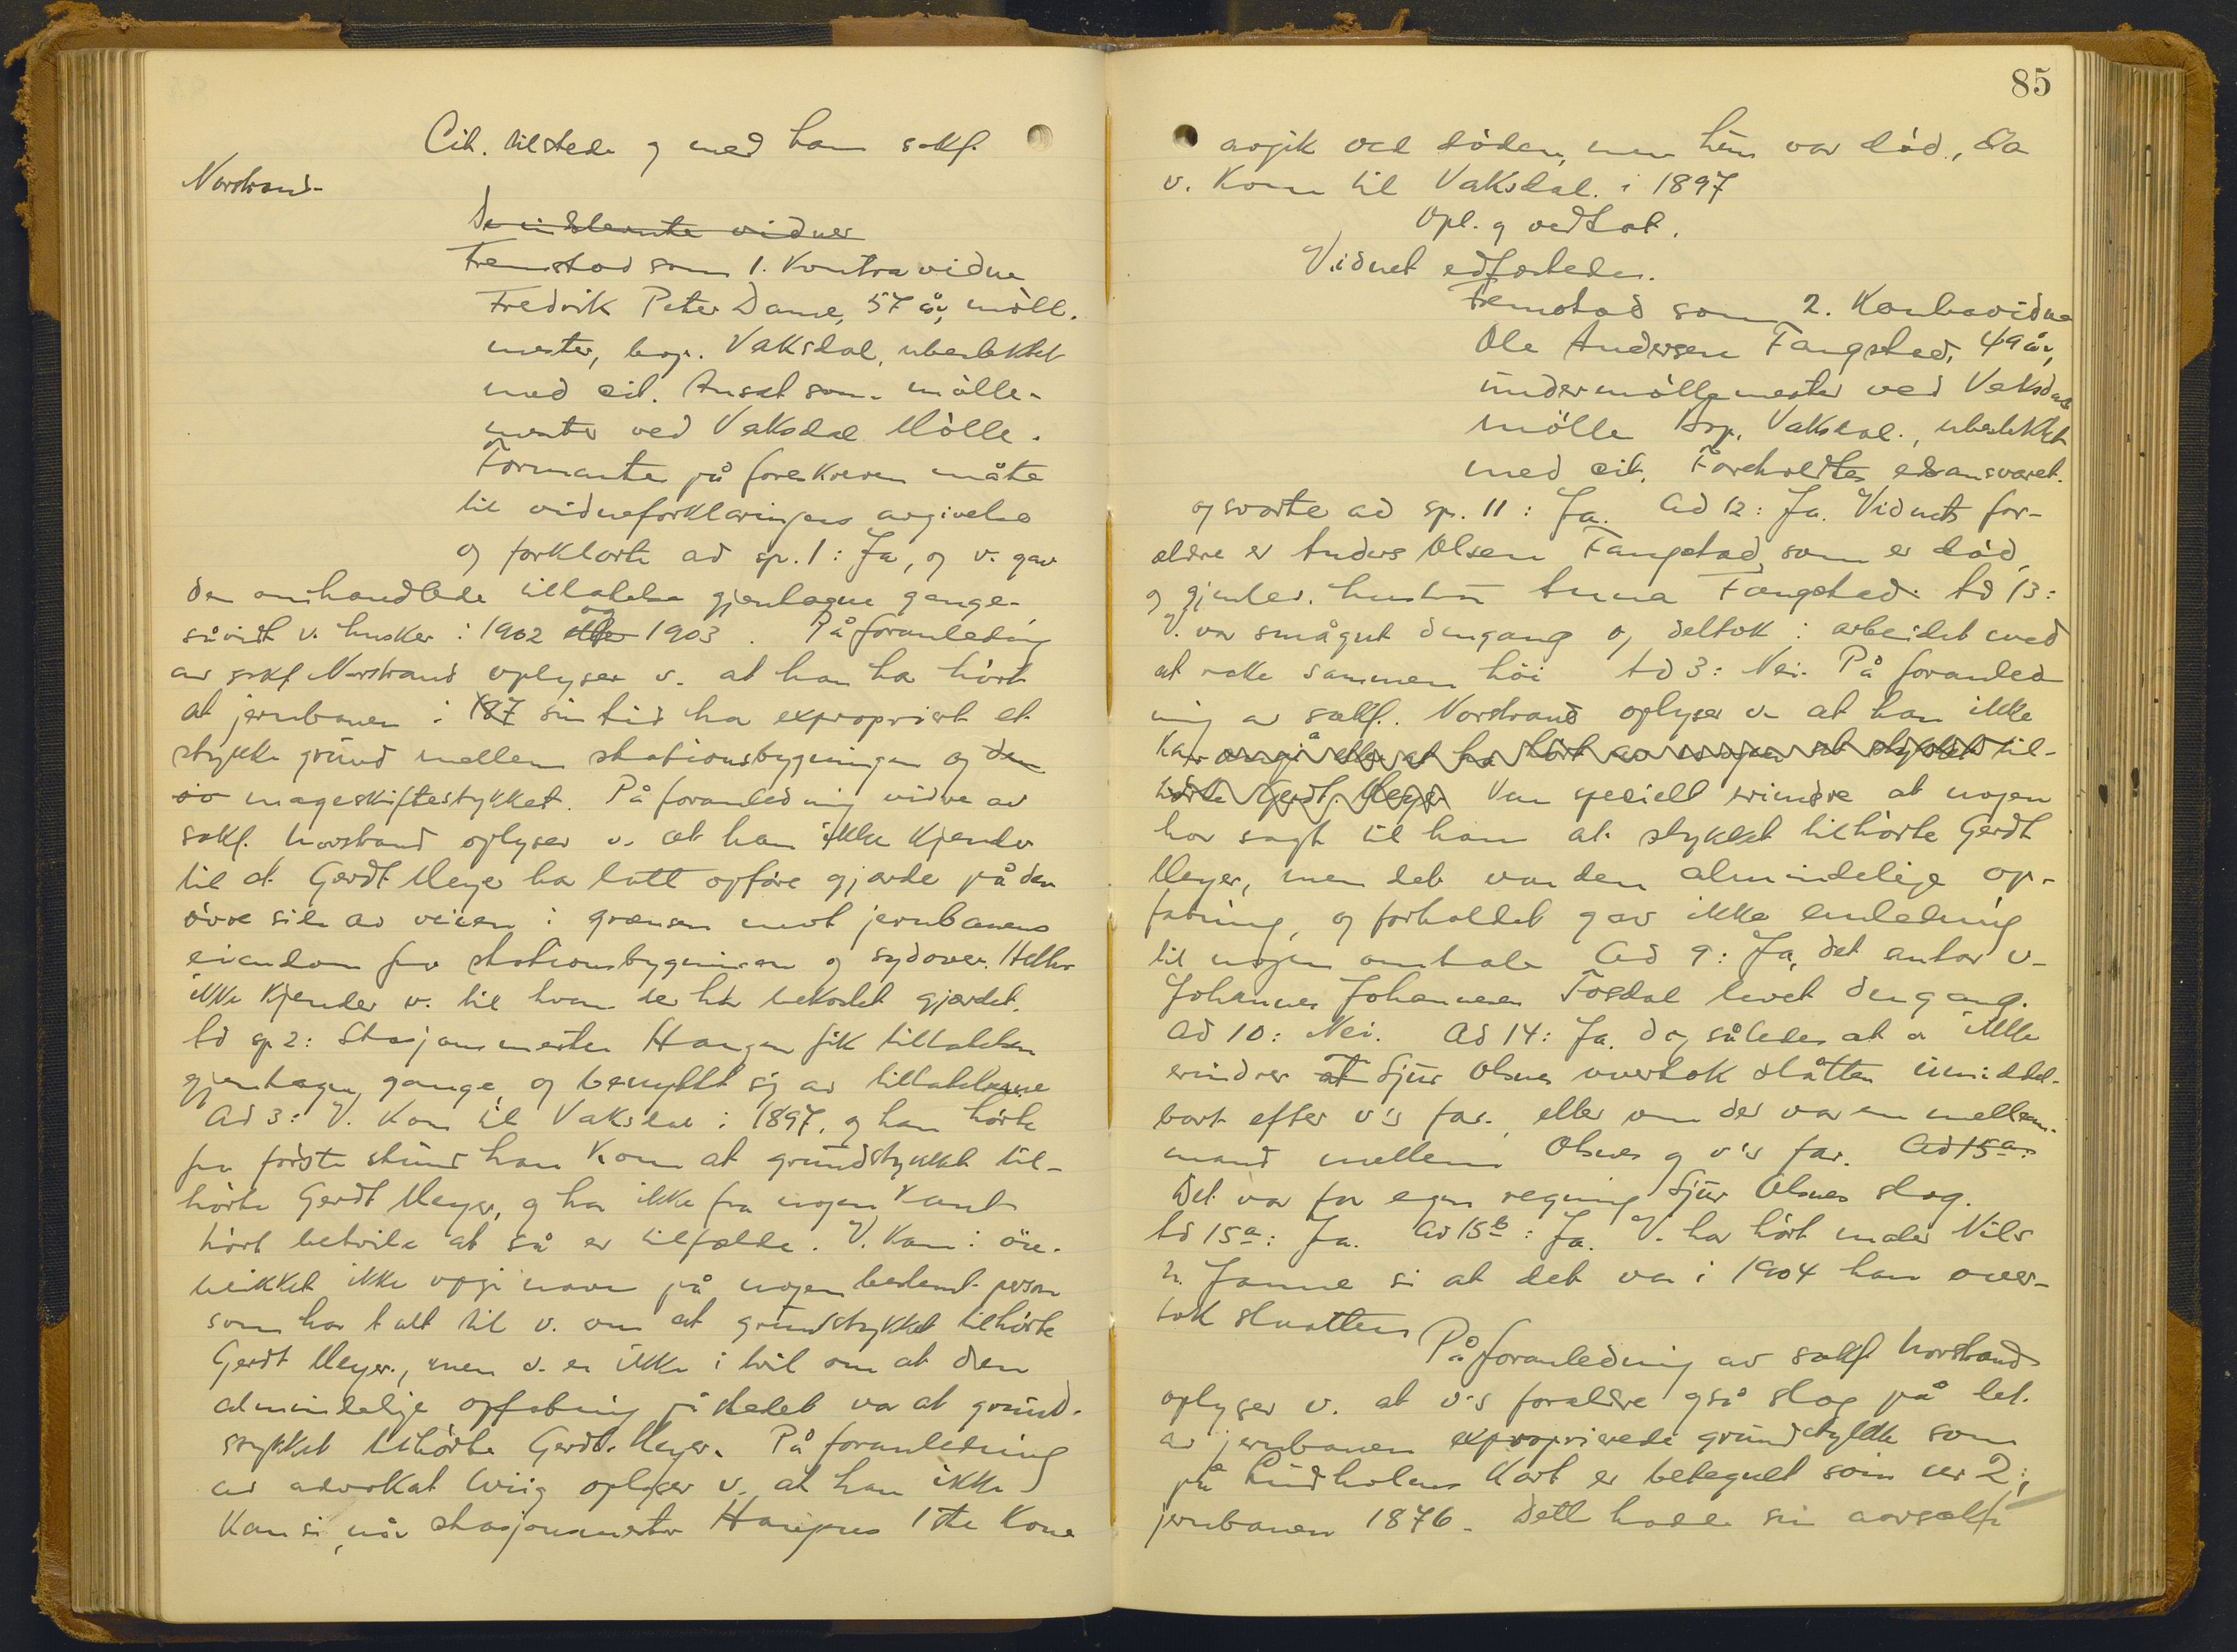 Cit. tilstede og med ham sakf.
Norstrand.
De indstevnte vidner
Fremstod som 1. Kontravidne
Fredrik Peter Danne, 57 år, möll.
mester, bop. Vaksdal, ubeslektet
med cit. Ansat som mölle-
mester ved Vaksdal Mölle.
Formantes på foreskreven måte
til vidneforklaringens avgivelse
og forklarte ad sp. 1: Ja, og v. gav
den omhandlede tillatelse gjentagne gange
såvidt v. husker i 1902 og eller 1903. På foranledning
av sakf Norstrand oplyser v. at han ha hört
at jernbanen i 187 sin tid ha expropriert et
stykke grund mellem stationsbygningen og den
sö mageskiftestykket. På foranledning videre av
sakf. Norstrand oplyser v. at han ikke kjender
til at Gerdt Meyer ha latt opföre gjærde på den
övre side av veien i grænsen mot jernbanens
eiendom fra stationsbygningen og sydover. Heller
ikke kjender v. til hvem der ha bekostet gjærdet.
Ad sp 2: Stasjonsmester Haugen fik tillatelsen
gjentagne gange og benyttet sig av tillatelserne
Ad 3: V. kom til Vaksdal i 1897, og han hörte
fra förste stund han kom at grundstykket til-
hörte Gerdt Meyer, og ha ikke fra nogen kant
hört betvile at så er tilfælde. V. kan i öie-
blikket ikke opgi navn på nogen bestemt person
som har talt til v. om at grundstykket tilhörte
Gerdt Meyer, men v. er ikke i tvil om at den
almindelige opfatning på stedet var at grund-
stykket tilhörte Gerdt Meyer. På foranledning
av advokat Wiig oplyser v. at han ikke
kan si, når stasjonsmester Haugens 1ste kone
85
avgik ved döden, men hun var död, da
v. kom til Vaksdal i 1897
Opl. og vedtat.
Vidnet edfæstedes.
Fremstod som 2. Kontravidne
Ole Andersen Fangstad, 49 år,
undermöllemester ved Vaksdal
mölle bop. Vaksdal, ubeslektet
med cit. Foreholdtes edsansvaret
og svarte ad sp. 11: Ja. Ad 12: Ja. Vidnets for-
ældre er Anders Olsen Fangstad, som er död,
og gjenlev. hustru Anna Fangstad. Ad 13:
V. var smågut dengang og deltok i arbeidet med
at rake sammen höi Ad 3: Nei. På foranled
ning av sakf. Norstrand oplyser v. at han ikke
kan angi eller at ha hört av nogen at stykket til-
hörte Gerdt Meyer kan specielt erindre at nogen
har sagt til ham at stykket tilhörte Gerdt
Meyer, men det var den almindelige op-
fatning, og forholdet gav ikke anledning
til nogen omtale Ad 9: Ja, det antar v.
Johannes Johannesen Fosdal levet dengang.
Ad 10: Nei. Ad 14: Ja, dog således at v ikke
erindrer at Sjur Olsnes overtok slåtten umiddel-
bart efter v's far, eller om der var en mellem-
mand mellem Olsnes og v's far. Ad 15a:
Det var for egen regning Sjur Olsnes slog.
Ad 15a: Ja. Ad 15b: Ja. V. har hört maler Nils
N. Janne si at det var i 1904 han over-
tok slaatten
På foranledning av sakf Norstrand
oplyser v. at v's forældre også slog på det
av jernbanen exproprierede grundstykke som
på Lindholms kart er betegnet som nr 2;
jernbanen 1876. Dette hadde sin